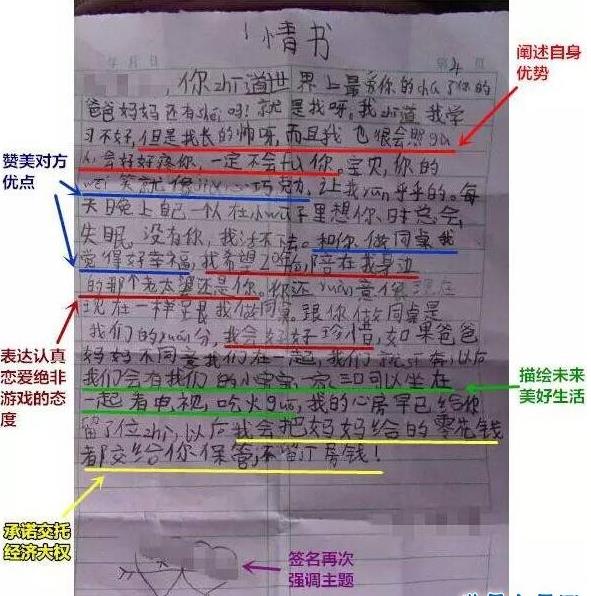 情书
年 月 日
第 页
你zhi道世界上最爱你的chu了你的
爸爸妈妈还有shei吗!就是我呀。我zhi道我学
习不好,但是我长的帅呀,而且我也很会照gu
人,会好好疼你,一定不会fu你。宝贝,你的
wei笑就像
让我yun乎乎的。每
天晚上自己一个人在小wu子里想你时总会
失眠。没有你,我活不下去。和你做同桌我
觉得好幸福,我希望20年后陪在我身边
的那个老太婆还是你。你还yuan意像现在
现在一样坐是我做同桌。跟你做同桌是
我们的yuan分,我会好好珍惜,如果爸爸
妈妈不同意我们在一起,我们就私奔,以后
我们会有我们的小宝宝,一家三口可以坐在
一起看电视,吃火guo,我的心房早已给你
留了位zhi,以后我会把妈妈给的零花钱
都交给你保管,不留
钱!
阐述自身
优势
赞美对方
优点
表达认真
恋爱绝非
游戏的态
度
描绘未来
美好生活
承诺交托
经济大权
签名再次
强调主题